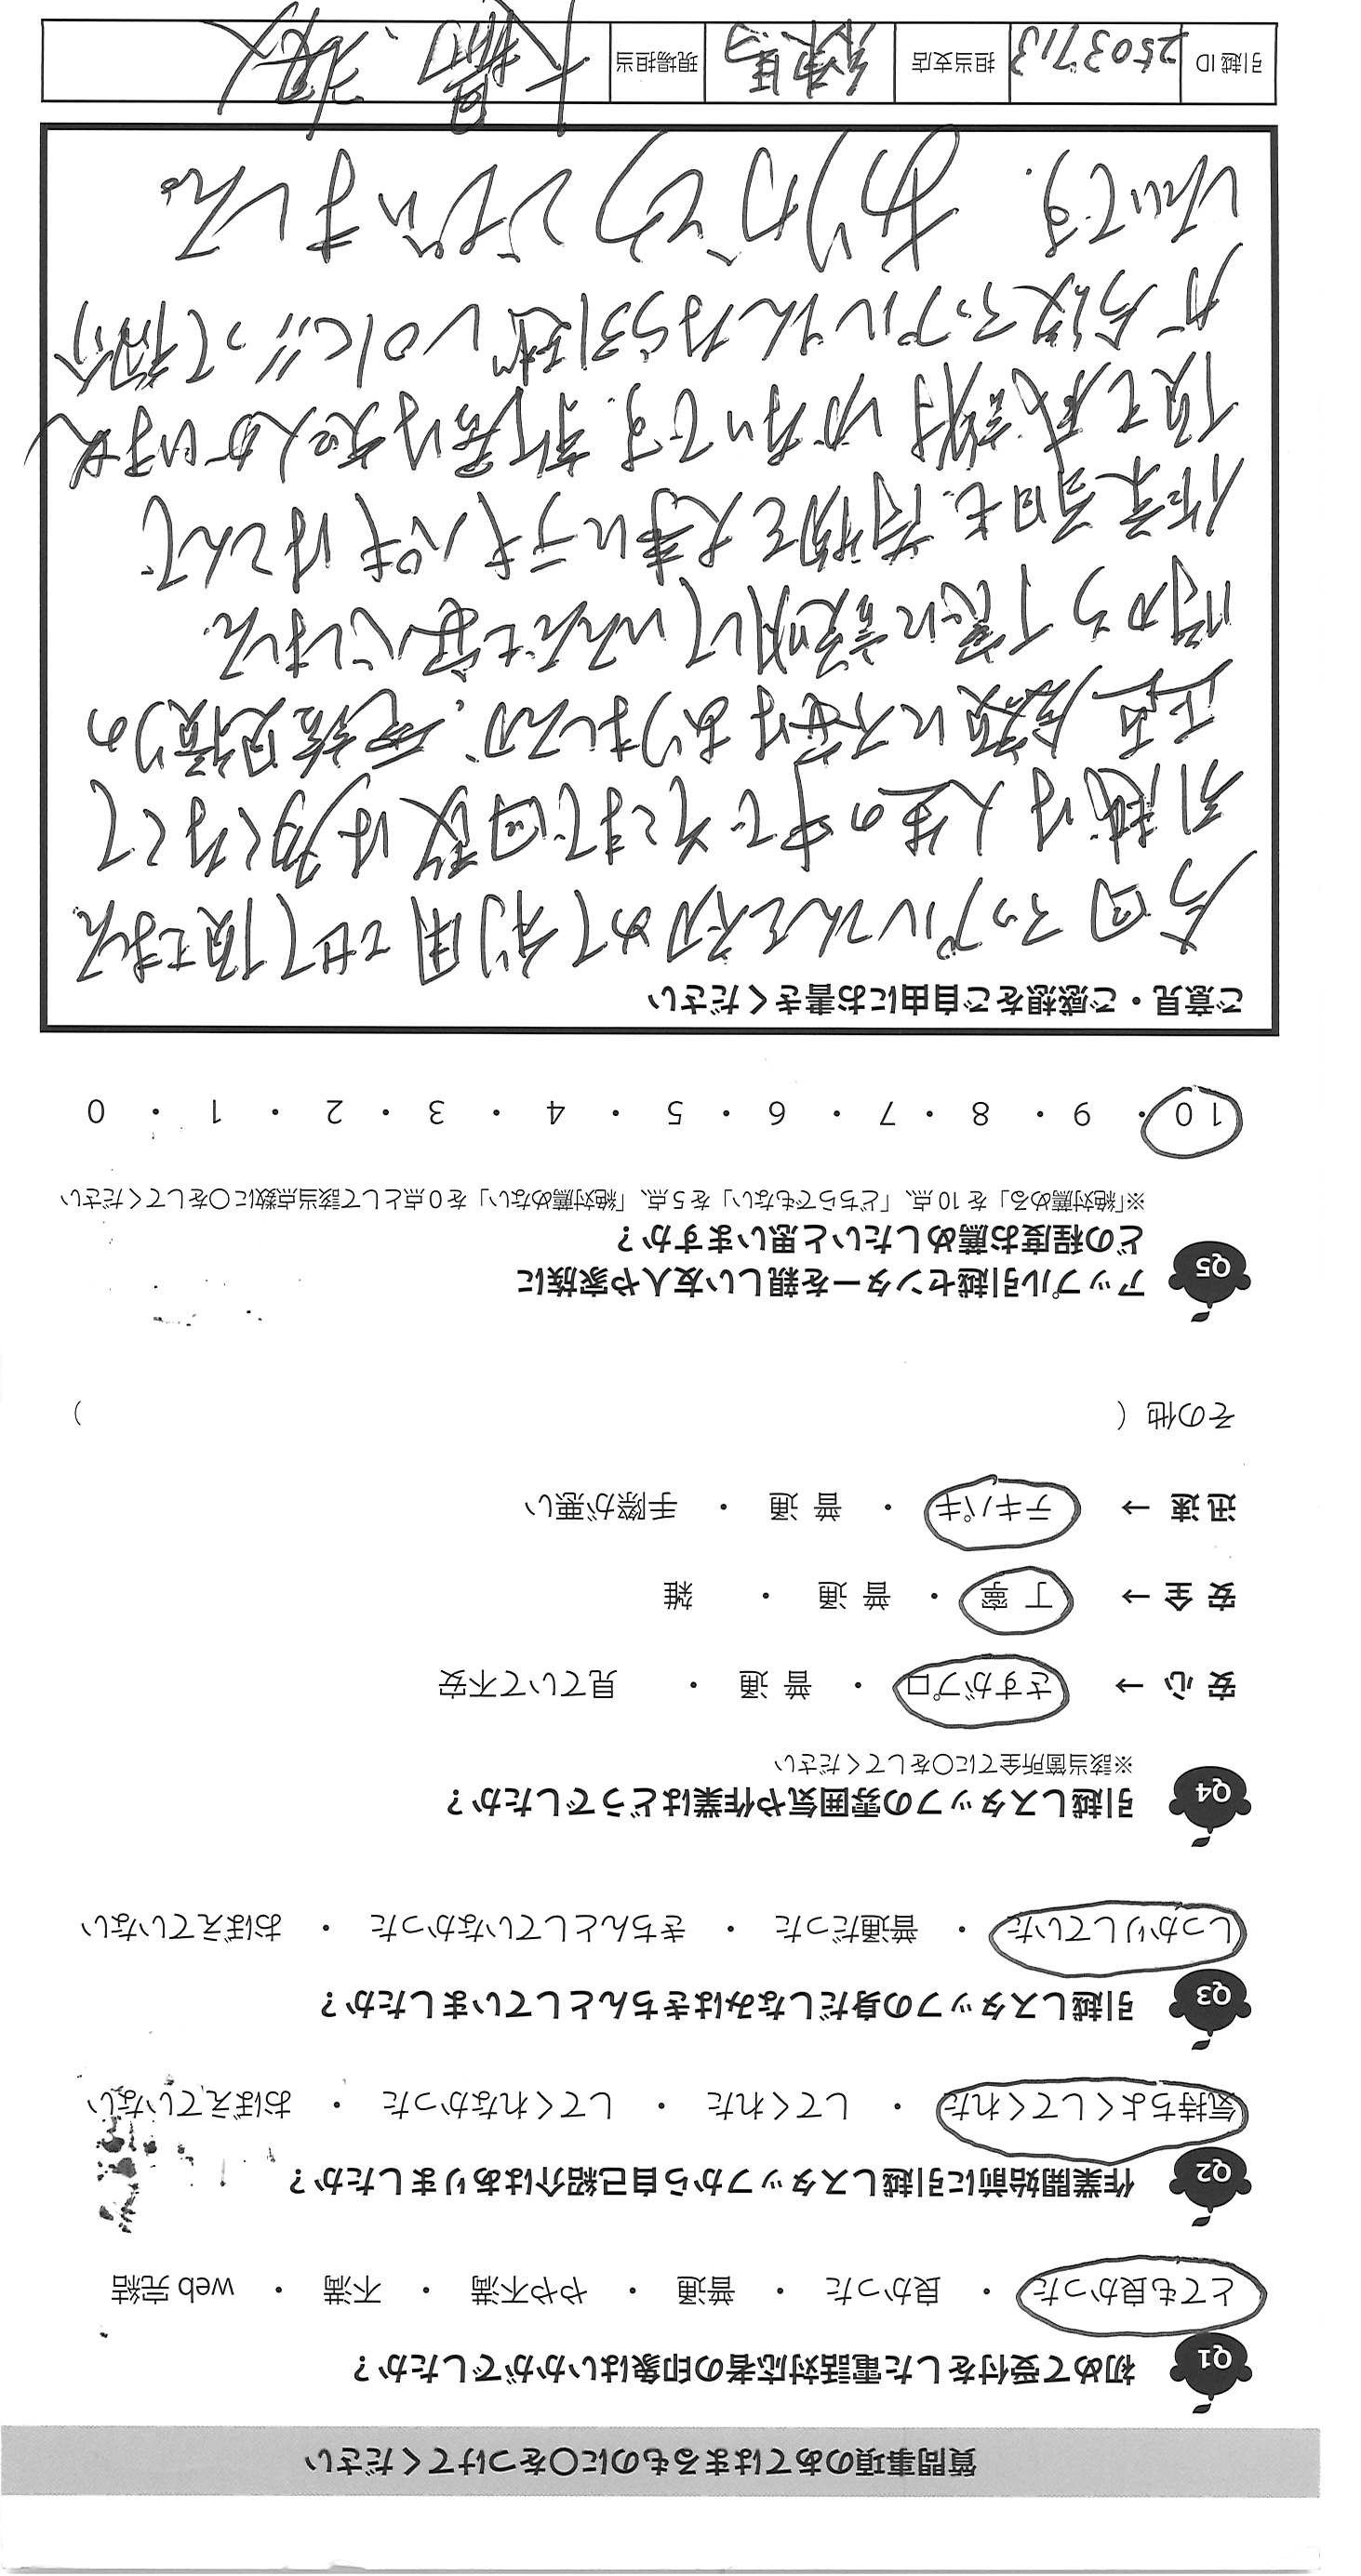 質問事項のあてはまるものに○をつけてください
Q1 初めて受付をした電話対応者の印象はいかがでしたか？
とても良かった ・ 良かった ・ 普通 ・ やや不満 ・ 不満 ・ web 完結
Q2 作業開始前に引越しスタッフから自己紹介はありましたか？
気持ちよくしてくれた ・ してくれた ・ してくれなかった ・ おぼえていない
Q3 引越しスタッフの身だしなみはきちんとしていましたか？
しっかりしていた ・ 普通だった ・ きちんとしていなかった ・ おぼえていない
Q4 引越しスタッフの雰囲気や作業はどうでしたか？
※該当箇所全てに○をしてください
安 心 → さすがプロ ・ 普 通 ・ 見ていて不安
安 全 → 丁 寧 ・ 普 通 ・ 雑
迅 速 → テキパキ ・ 普 通 ・ 手際が悪い
その他（ ）
Q5 アップル引越センターを親しい友人や家族に
どの程度お薦めしたいと思いますか？
※「絶対薦める」を 10 点、「どちらでもない」を 5 点、「絶対薦めない」を 0 点として該当点数に○をしてください
10 ・ 9 ・ 8 ・ 7 ・ 6 ・ 5 ・ 4 ・ 3 ・ 2 ・ 1 ・ 0
ご意見・ご感想をご自由にお書きください
今回アップルさんを初めて利用させて頂きました
引越は人生の中でそこまで回数は多くなくて
正直金額に不安はありましたが、電話見積りの
時から丁寧に説明していただき安心しました。
作業当日も、荷物を大事にテキパキはこんで
頂き感謝しかないです。新居は知人がいません
が今後アップルさんなら引越しのに!!って紹介
したいです。 ありがとうございました。
引越 ID 2503713 担当支店 練馬 現場担当 大楊、